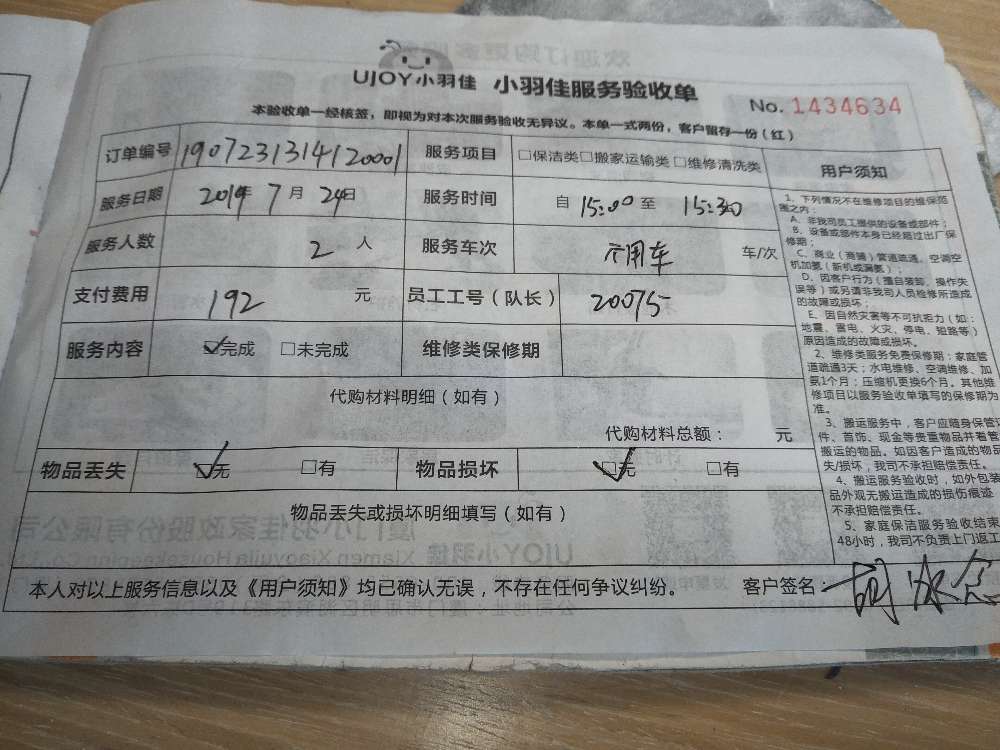 UJOY小羽佳 小羽佳服务验收单
No. 1434634
本验收单一经核签，即视为对本次服务验收无异议。本单一式两份，客户留存一份（红）
订单编号 1907231314120001 服务项目 □保洁类□搬家运输类□维修清洗类
服务日期 2019年 7 月 24日 服务时间 自 15:00 至 15:30
服务人数 2 人 服务车次 不用车 车/次
支付费用 192 元 员工工号（队长） 20075
服务内容 ☑完成 □未完成 维修类保修期
代购材料明细（如有）
代购材料总额： 元
物品丢失 ☑无 □有 物品损坏 ☑无 □有
物品丢失或损坏明细填写（如有）
本人对以上服务信息以及《用户须知》均已确认无误，不存在任何争议纠纷。 客户签名：
用户须知
1、下列情况不在维修项目的维保范
围之内：
A、非我司员工提供的设备或部件；
B、设备或部件本身已经超过出厂保
修期；
C、商业（商铺）管道疏通、空调空
机加氨（新机或漏氨）；
D、因客户行为（擅自装卸、操作失
误等）或另请非我司人员检修所造成
的故障或损坏；
E、因自然灾害等不可抗拒力（如：
地震、雷电、火灾、停电、短路等）
原因造成的故障或损坏。
2、维修类服务免费保修期：家庭管
道疏通3天；水电维修、空调维修、加
氨1个月；压缩机更换6个月。其他维
修项目以服务验收单填写的保修期为
准。
3、搬运服务中，客户应随身保管证
件、首饰、现金等贵重物品并看管
搬运的物品。如因客户造成的物品
失/损坏，我司不承担赔偿责任。
4、搬运服务验收时，如外包装
品外观无搬运造成的损伤痕迹
不承担赔偿责任。
5、家庭保洁服务验收结束
48小时，我司不负责上门返工